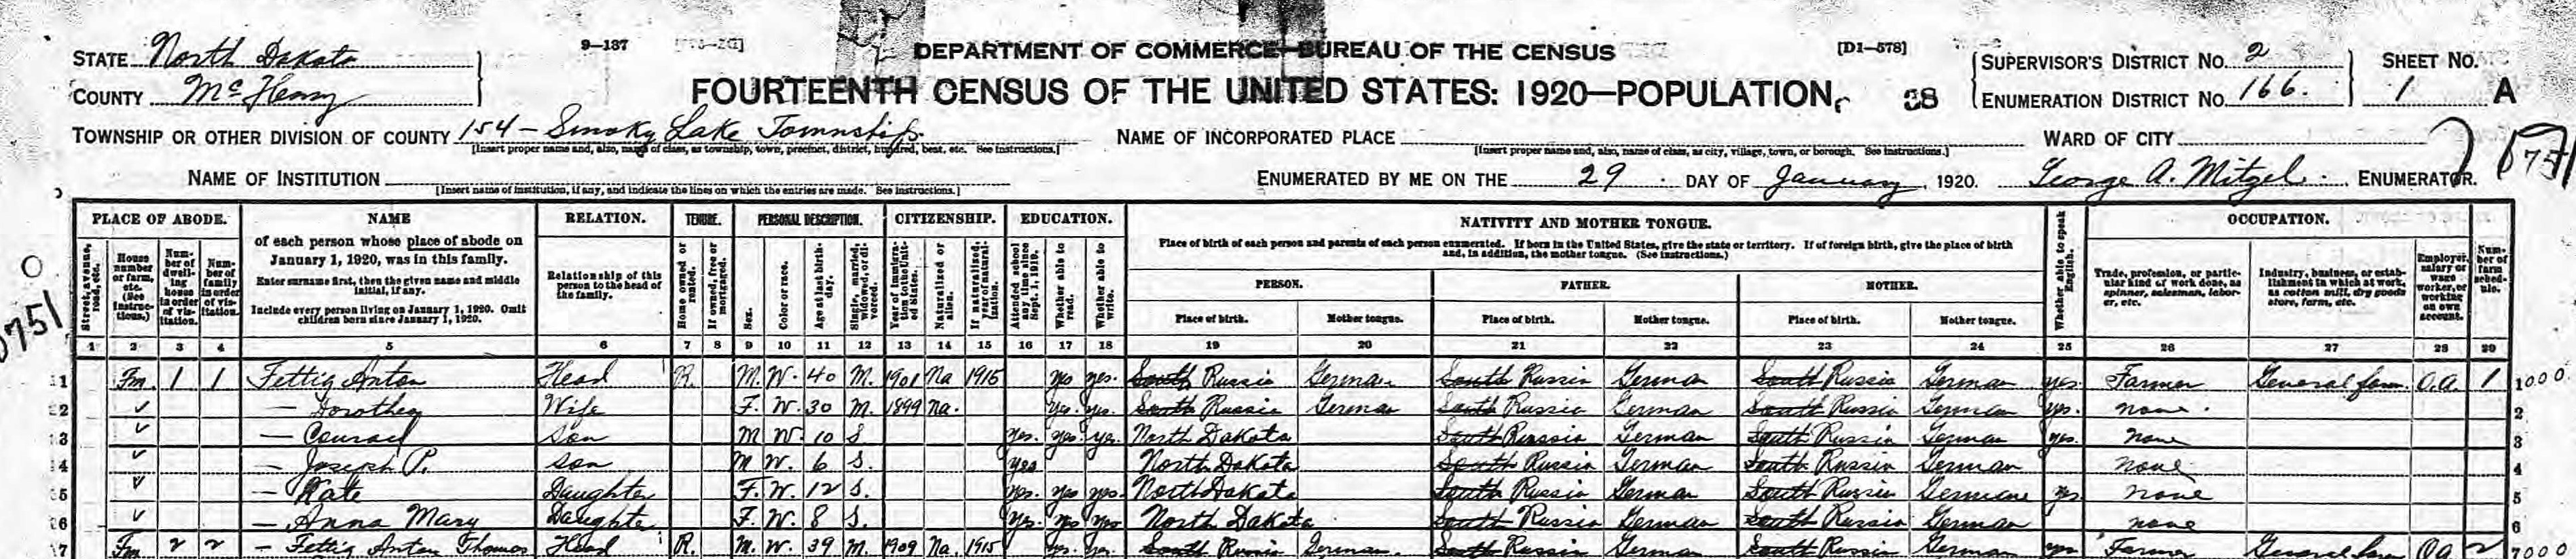 STATE North Dakota
COUNTY McHenry
9-137
DEPARTMENT OF COMMERCE—BUREAU OF THE CENSUS
[D1—578]
FOURTEENTH CENSUS OF THE UNITED STATES: 1920—POPULATION
38
SUPERVISOR'S DISTRICT No. 2
ENUMERATION DISTRICT No. 166.
SHEET No.
1 A
TOWNSHIP OR OTHER DIVISION OF COUNTY 154 - Smoky Lake Township.
[Insert proper name and, also, name of class, as township, town, precinct, district, hundred, beat, etc. See instructions.]
NAME OF INCORPORATED PLACE
[Insert proper name and, also, name of class, as city, village, town, or borough. See instructions.]
WARD OF CITY
NAME OF INSTITUTION
[Insert name of institution, if any, and indicate the lines on which the entries are made. See instructions.]
ENUMERATED BY ME ON THE 29 DAY OF January, 1920. George A. Mitzel. ENUMERATOR.
751
PLACE OF ABODE.
Street, avenue, road, etc.
House number or farm, etc. (See instructions.)
Number of dwelling house in order of visitation.
Number of family in order of visitation.
NAME
of each person whose place of abode on January 1, 1920, was in this family.
Enter surname first, then the given name and middle initial, if any.
Include every person living on January 1, 1920. Omit children born since January 1, 1920.
RELATION.
Relationship of this person to the head of the family.
TENURE.
Home owned or rented.
If owned, free or mortgaged.
PERSONAL DESCRIPTION.
Sex.
Color or race.
Age at last birthday.
Single, married, widowed, or divorced.
CITIZENSHIP.
Year of immigration to the United States.
Naturalized or alien.
If naturalized, year of naturalization.
EDUCATION.
Attended school any time since Sept. 1, 1919.
Whether able to read.
Whether able to write.
NATIVITY AND MOTHER TONGUE.
Place of birth of each person and parents of each person enumerated. If born in the United States, give the state or territory. If of foreign birth, give the place of birth and, in addition, the mother tongue. (See instructions.)
PERSON.
Place of birth.
Mother tongue.
FATHER.
Place of birth.
Mother tongue.
MOTHER.
Place of birth.
Mother tongue.
Whether able to speak English.
OCCUPATION.
Trade, profession, or particular kind of work done, as spinner, salesman, laborer, etc.
Industry, business, or establishment in which at work, as cotton mill, dry goods store, farm, etc.
Employer, salary or wage worker, or working on own account.
Number of farm schedule.
1 2 3 4 5 6 7 8 9 10 11 12 13 14 15 16 17 18 19 20 21 22 23 24 25 26 27 28 29
1 Fm 1 1 Fettig Anton Head R. M. W. 40 M. 1901 Na 1915 yes yes. South Russia German South Russia German South Russia German yes Farmer General farm O.A. 1 1000
2 — Dorothea Wife F. W. 30 M. 1899 na. yes. yes. South Russia German South Russia German South Russia German yes. none. 2
3 — Conrad Son M W. 10 S yes. yes yes. North Dakota South Russia German South Russia German yes. none 3
4 — Joseph P. Son M W. 6 S. yes North Dakota South Russia German South Russia German none 4
5 — Kate Daughter F. W. 12 S. yes. yes yes. North Dakota South Russia German South Russia German yes none 5
6 — Anna Mary Daughter F. W. 8 S. yes. yes yes North Dakota South Russia German South Russia German none 6
7 Fm 2 2 — Fettig Anton Thomas Head R. M. W. 39 M. 1909 Na. 1915 yes. yes. South Russia German. South Russia German South Russia German yes Farmer General farm OA 2 7000